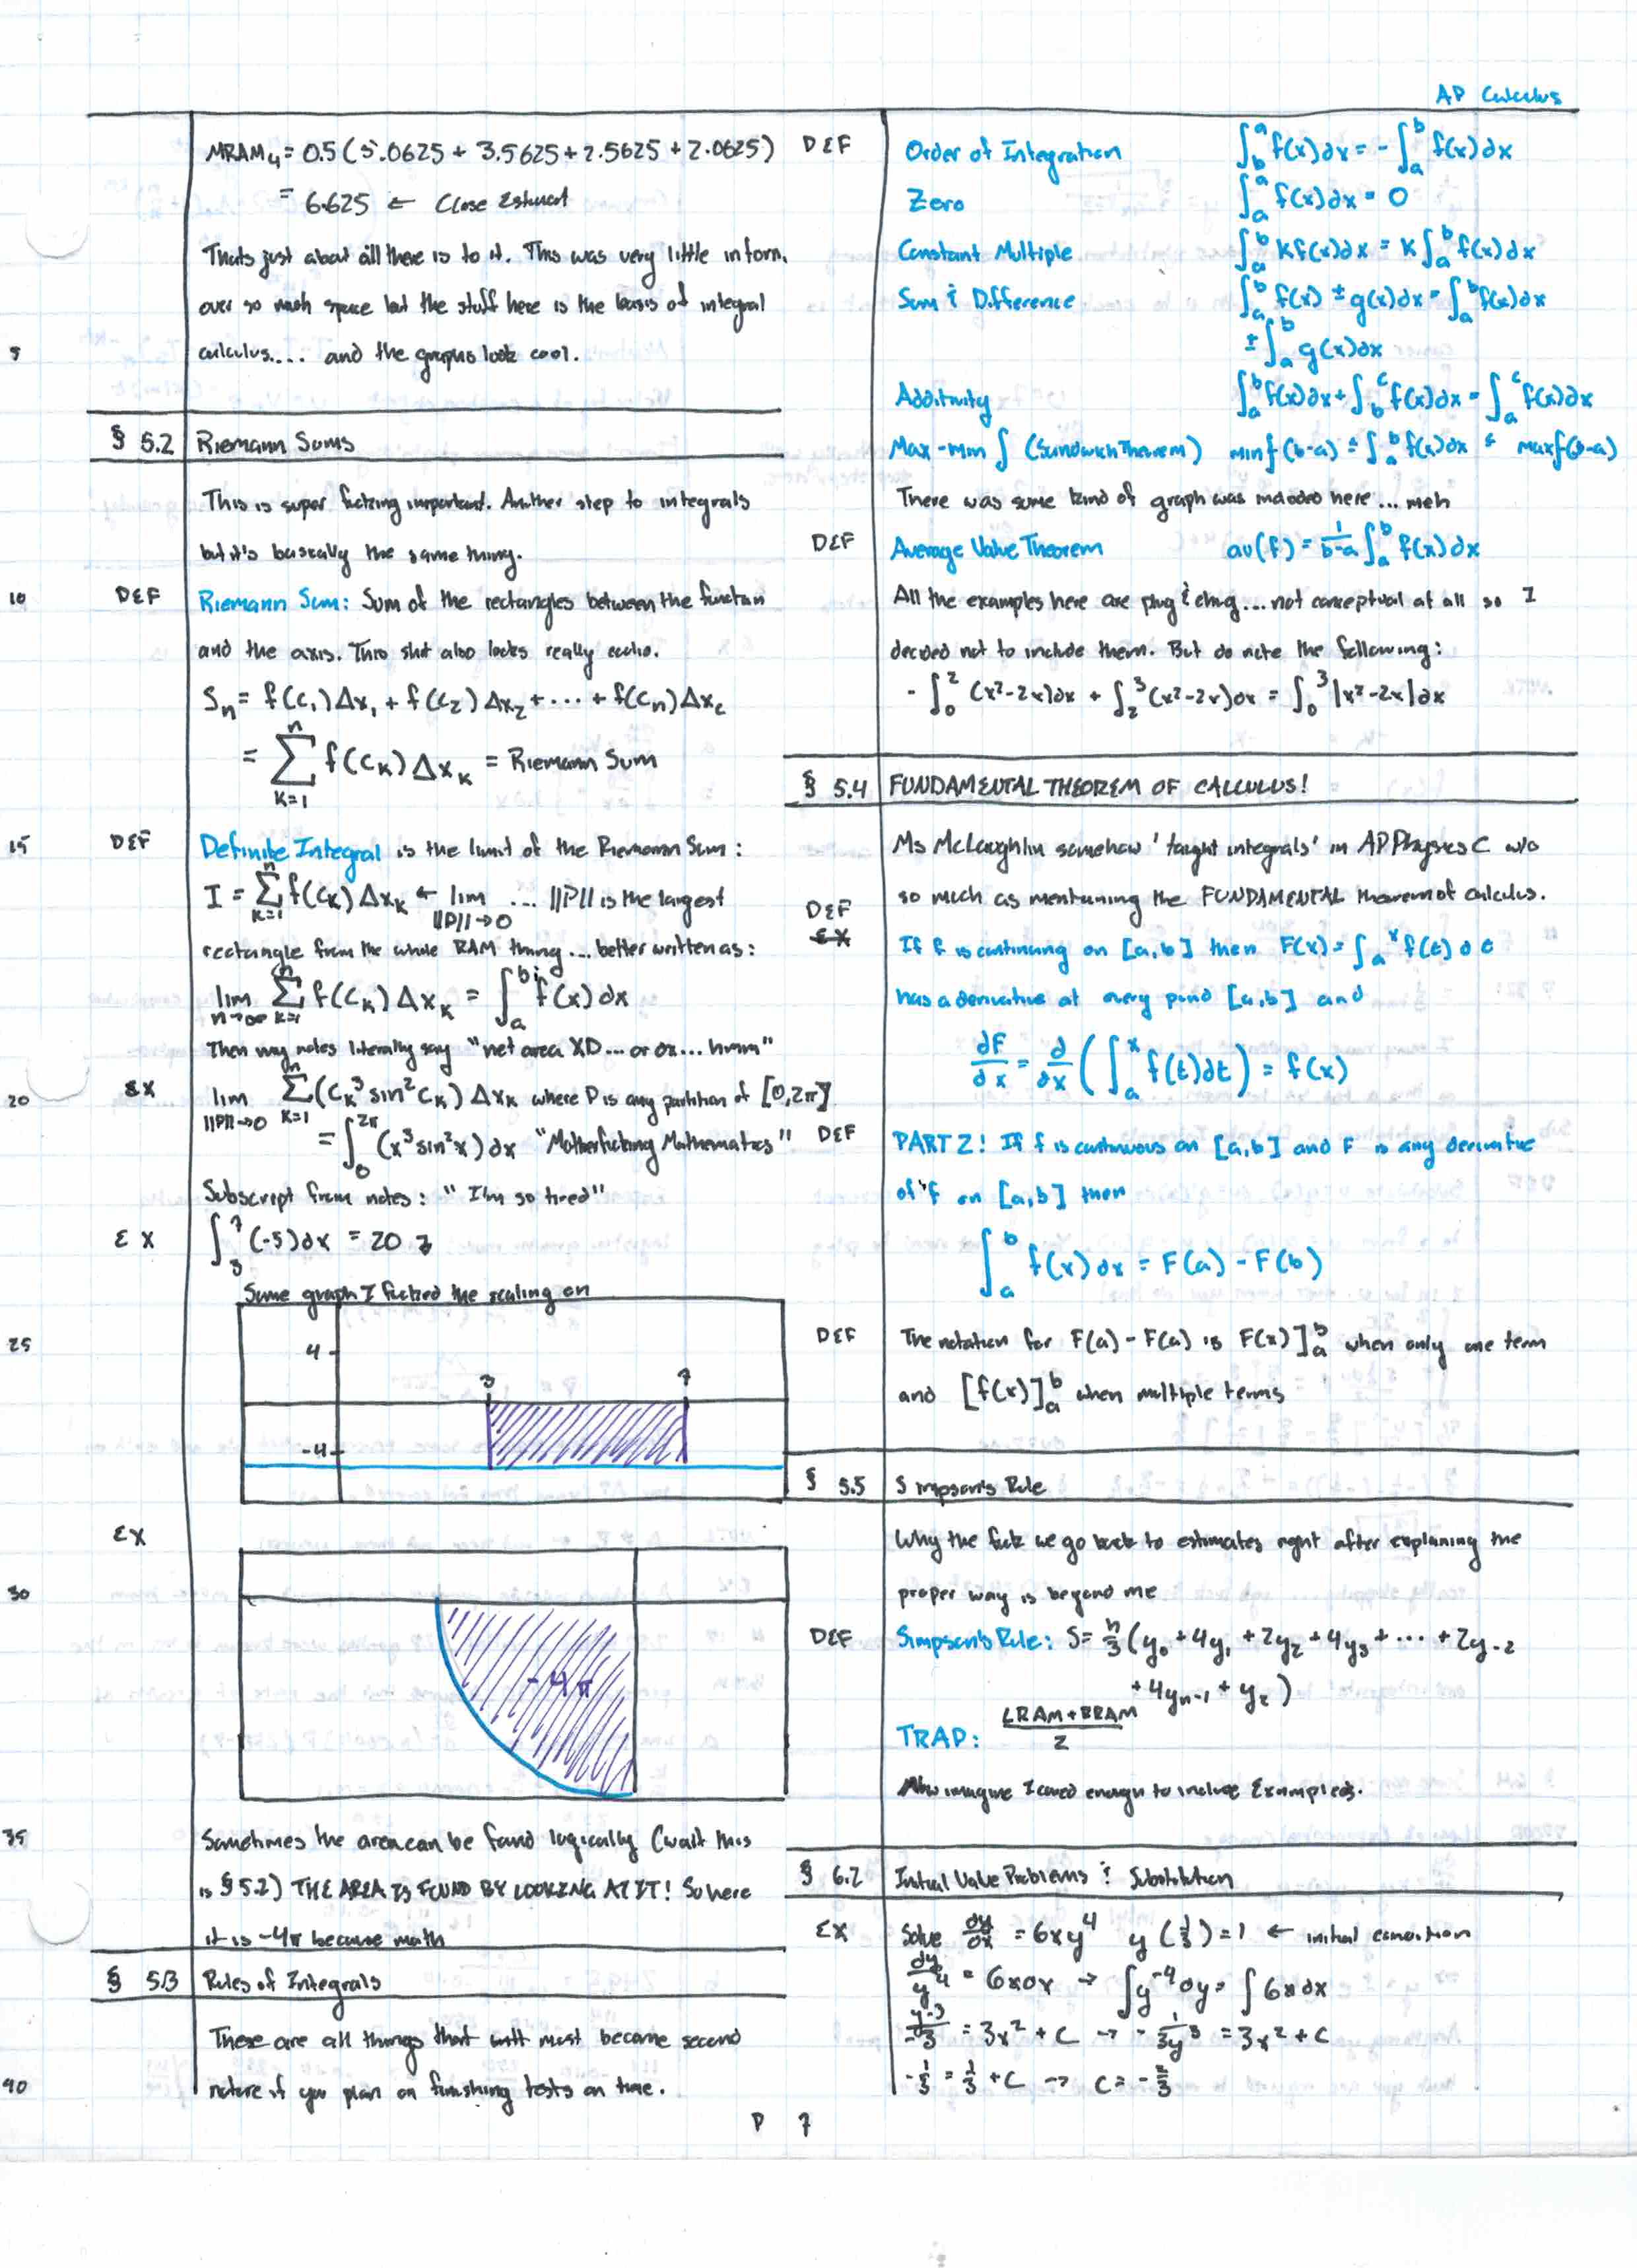 AP Calculus
MRAM₄ = 0.5 (5.0625 + 3.5625 + 2.5625 + 2.0625)
= 6.625 ← Close Estimat
Thats just about all there is to it. This was very little inform.
over so much space but the stuff here is the basis of integral
5 calculus.... and the graphs look cool.
§ 5.2 Riemann Sums
This is super fucking important. Another step to integrals
but it's basically the same thing.
10 DEF Riemann Sum: Sum of the rectangles between the function
and the axis. This shit also looks really
Sₙ = f(c₁)Δx₁ + f(c₂)Δx₂ + ··· + f(cₙ)Δx
= ∑ₖ₌₁ⁿ f(cₖ)Δxₖ = Riemann Sum
15 DEF Definite Integral is the limit of the Riemann Sum:
I = ∑ₖ₌₁ⁿ f(cₖ)Δxₖ ← lim ||P||→0 ... ||P|| is the largest
rectangle from the whole RAM thing... better written as:
lim n→∞ ∑ₖ₌₁ⁿ f(cₖ)Δxₖ = ∫ₐᵇ f(x)dx
Then my notes literally say "net area XD... or dx... hmm"
20 EX lim ||P||→0 ∑ₖ₌₁ⁿ (cₖ³ sin² cₖ) Δxₖ where P is any partition of [0,2π]
= ∫₀^2π (x³ sin² x)dx "Motherfucking Mathematics"
Subscript from notes: "I'm so tired"
EX ∫₃⁷ (-5)dx = 20
Some graph I fucked the scaling on
25 4
3 7
-4
EX
30
-4π
35 Sometimes the area can be found logically (wait this
is § 5.2) THE AREA IS FOUND BY LOOKING AT IT! So here
it is -4π because math
§ 5.3 Rules of Integrals
These are all things that must become second
40 nature if you plan on finishing tests on time.
DEF Order of Integration ∫_b^a f(x)dx = -∫_a^b f(x)dx
Zero ∫_a^a f(x)dx = 0
Constant Multiple ∫_a^b Kf(x)dx = K∫_a^b f(x)dx
Sum & Difference ∫_a^b f(x) ± g(x)dx = ∫_a^b f(x)dx
± ∫_a^b g(x)dx
Additivity ∫_a^b f(x)dx + ∫_b^c f(x)dx = ∫_a^c f(x)dx
Max-min ∫ (Sandwich Theorem) minf(b-a) ≤ ∫_a^b f(x)dx ≤ maxf(b-a)
There was some kind of graph was needed here... meh
DEF Average Value Theorem av(f) = 1/(b-a) ∫_a^b f(x)dx
All the examples here are plug & chug... not conceptual at all so I
decided not to include them. But do note the following:
-∫₀² (x²-2x)dx + ∫₂³ (x²-2x)dx = ∫₀³ |x²-2x|dx
§ 5.4 FUNDAMENTAL THEOREM OF CALCULUS!
Ms McLaughlin somehow 'taught integrals' in AP Physics C w/o
so much as mentioning the FUNDAMENTAL theorem of calculus.
DEF
EX If f is continuing on [a,b] then F(x) = ∫_a^x f(t)dt
has a derivative at every point [a,b] and
dF/dx = d/dx (∫_a^x f(t)dt) = f(x)
DEF PART 2! If f is continuous on [a,b] and F is any derivative
of f on [a,b] then
∫_a^b f(x)dx = F(a) - F(b)
DEF The notation for F(a) - F(a) is F(x)]_a^b when only one term
and [f(x)]_a^b when multiple terms
§ 5.5 Simpson's Rule
Why the fuck we go back to estimates right after explaining the
proper way is beyond me
DEF Simpson's Rule: S = h/3 (y₀ + 4y₁ + 2y₂ + 4y₃ + ··· + 2y₋₂
+ 4yₙ₋₁ + y)
TRAP: LRAM + RRAM / 2
Now imagine I cared enough to include Examples.
§ 6.2 Initial Value Problems & Substitution
EX Solve dy/dx = 6xy⁴ y(1/3) = 1 ← initial condition
dy/y⁴ = 6xdx → ∫y⁻⁴dy = ∫6xdx
y⁻³/-3 = 3x² + C → -1/3y³ = 3x² + C
-1/3 = 1/3 + C → C = -2/3
P 7